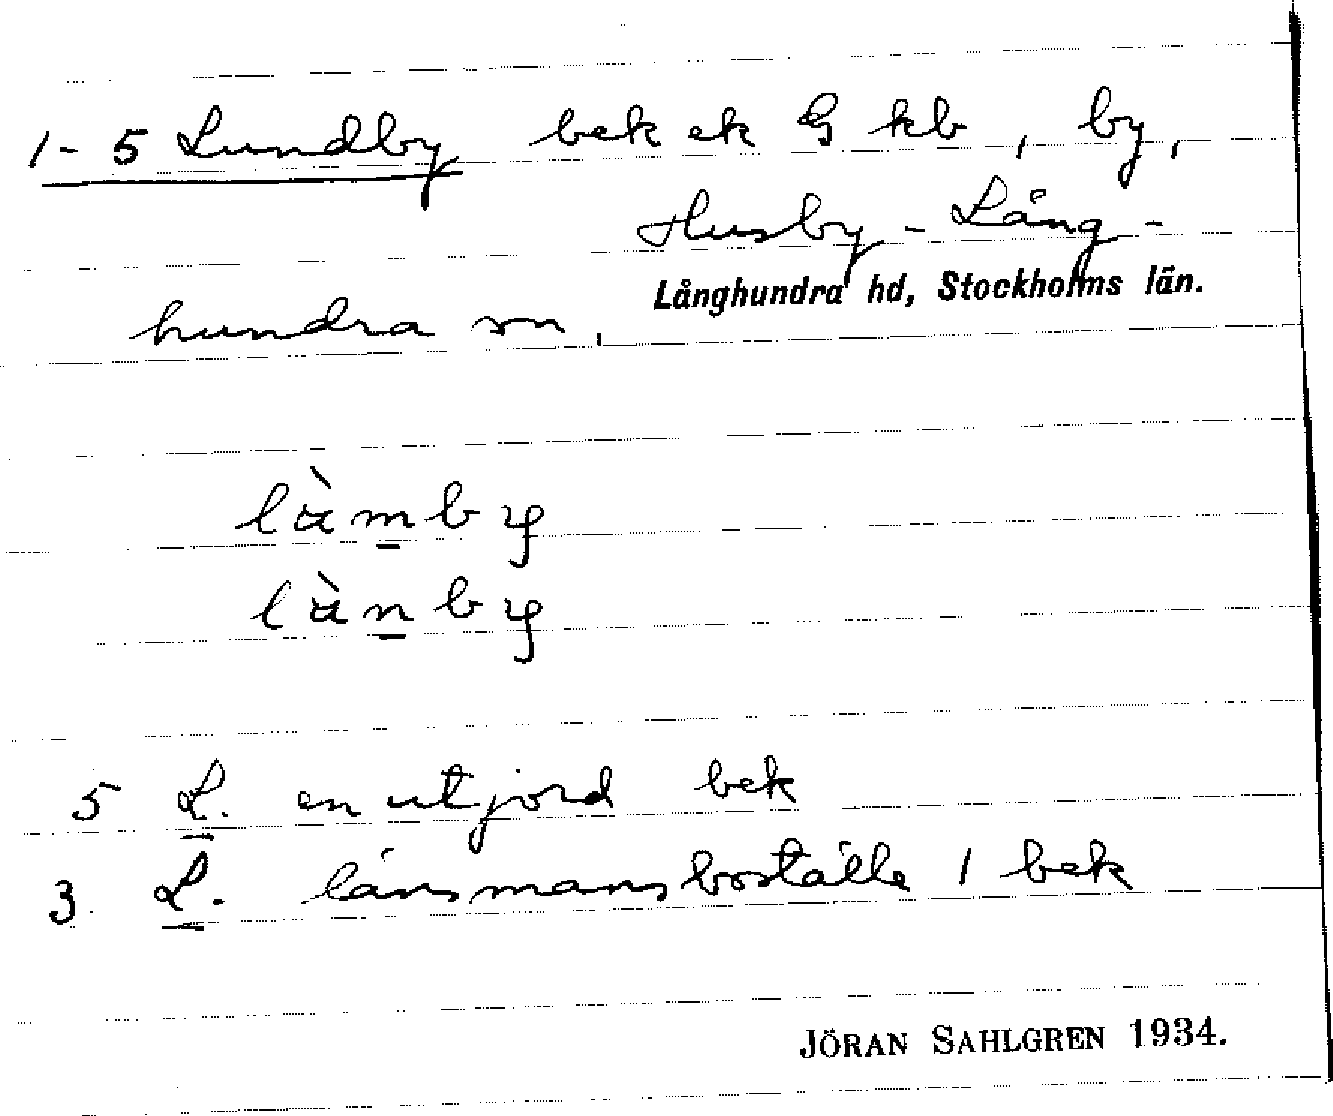 1-5 Lundby bek ek G kb, by,
Husby-Lång-
Långhundra hd, Stockholms län.
hundra sn,
làmby
lànby
5 L. en utjord bek
3. L. länsmansboställe 1 bek
JÖRAN SAHLGREN 1934.